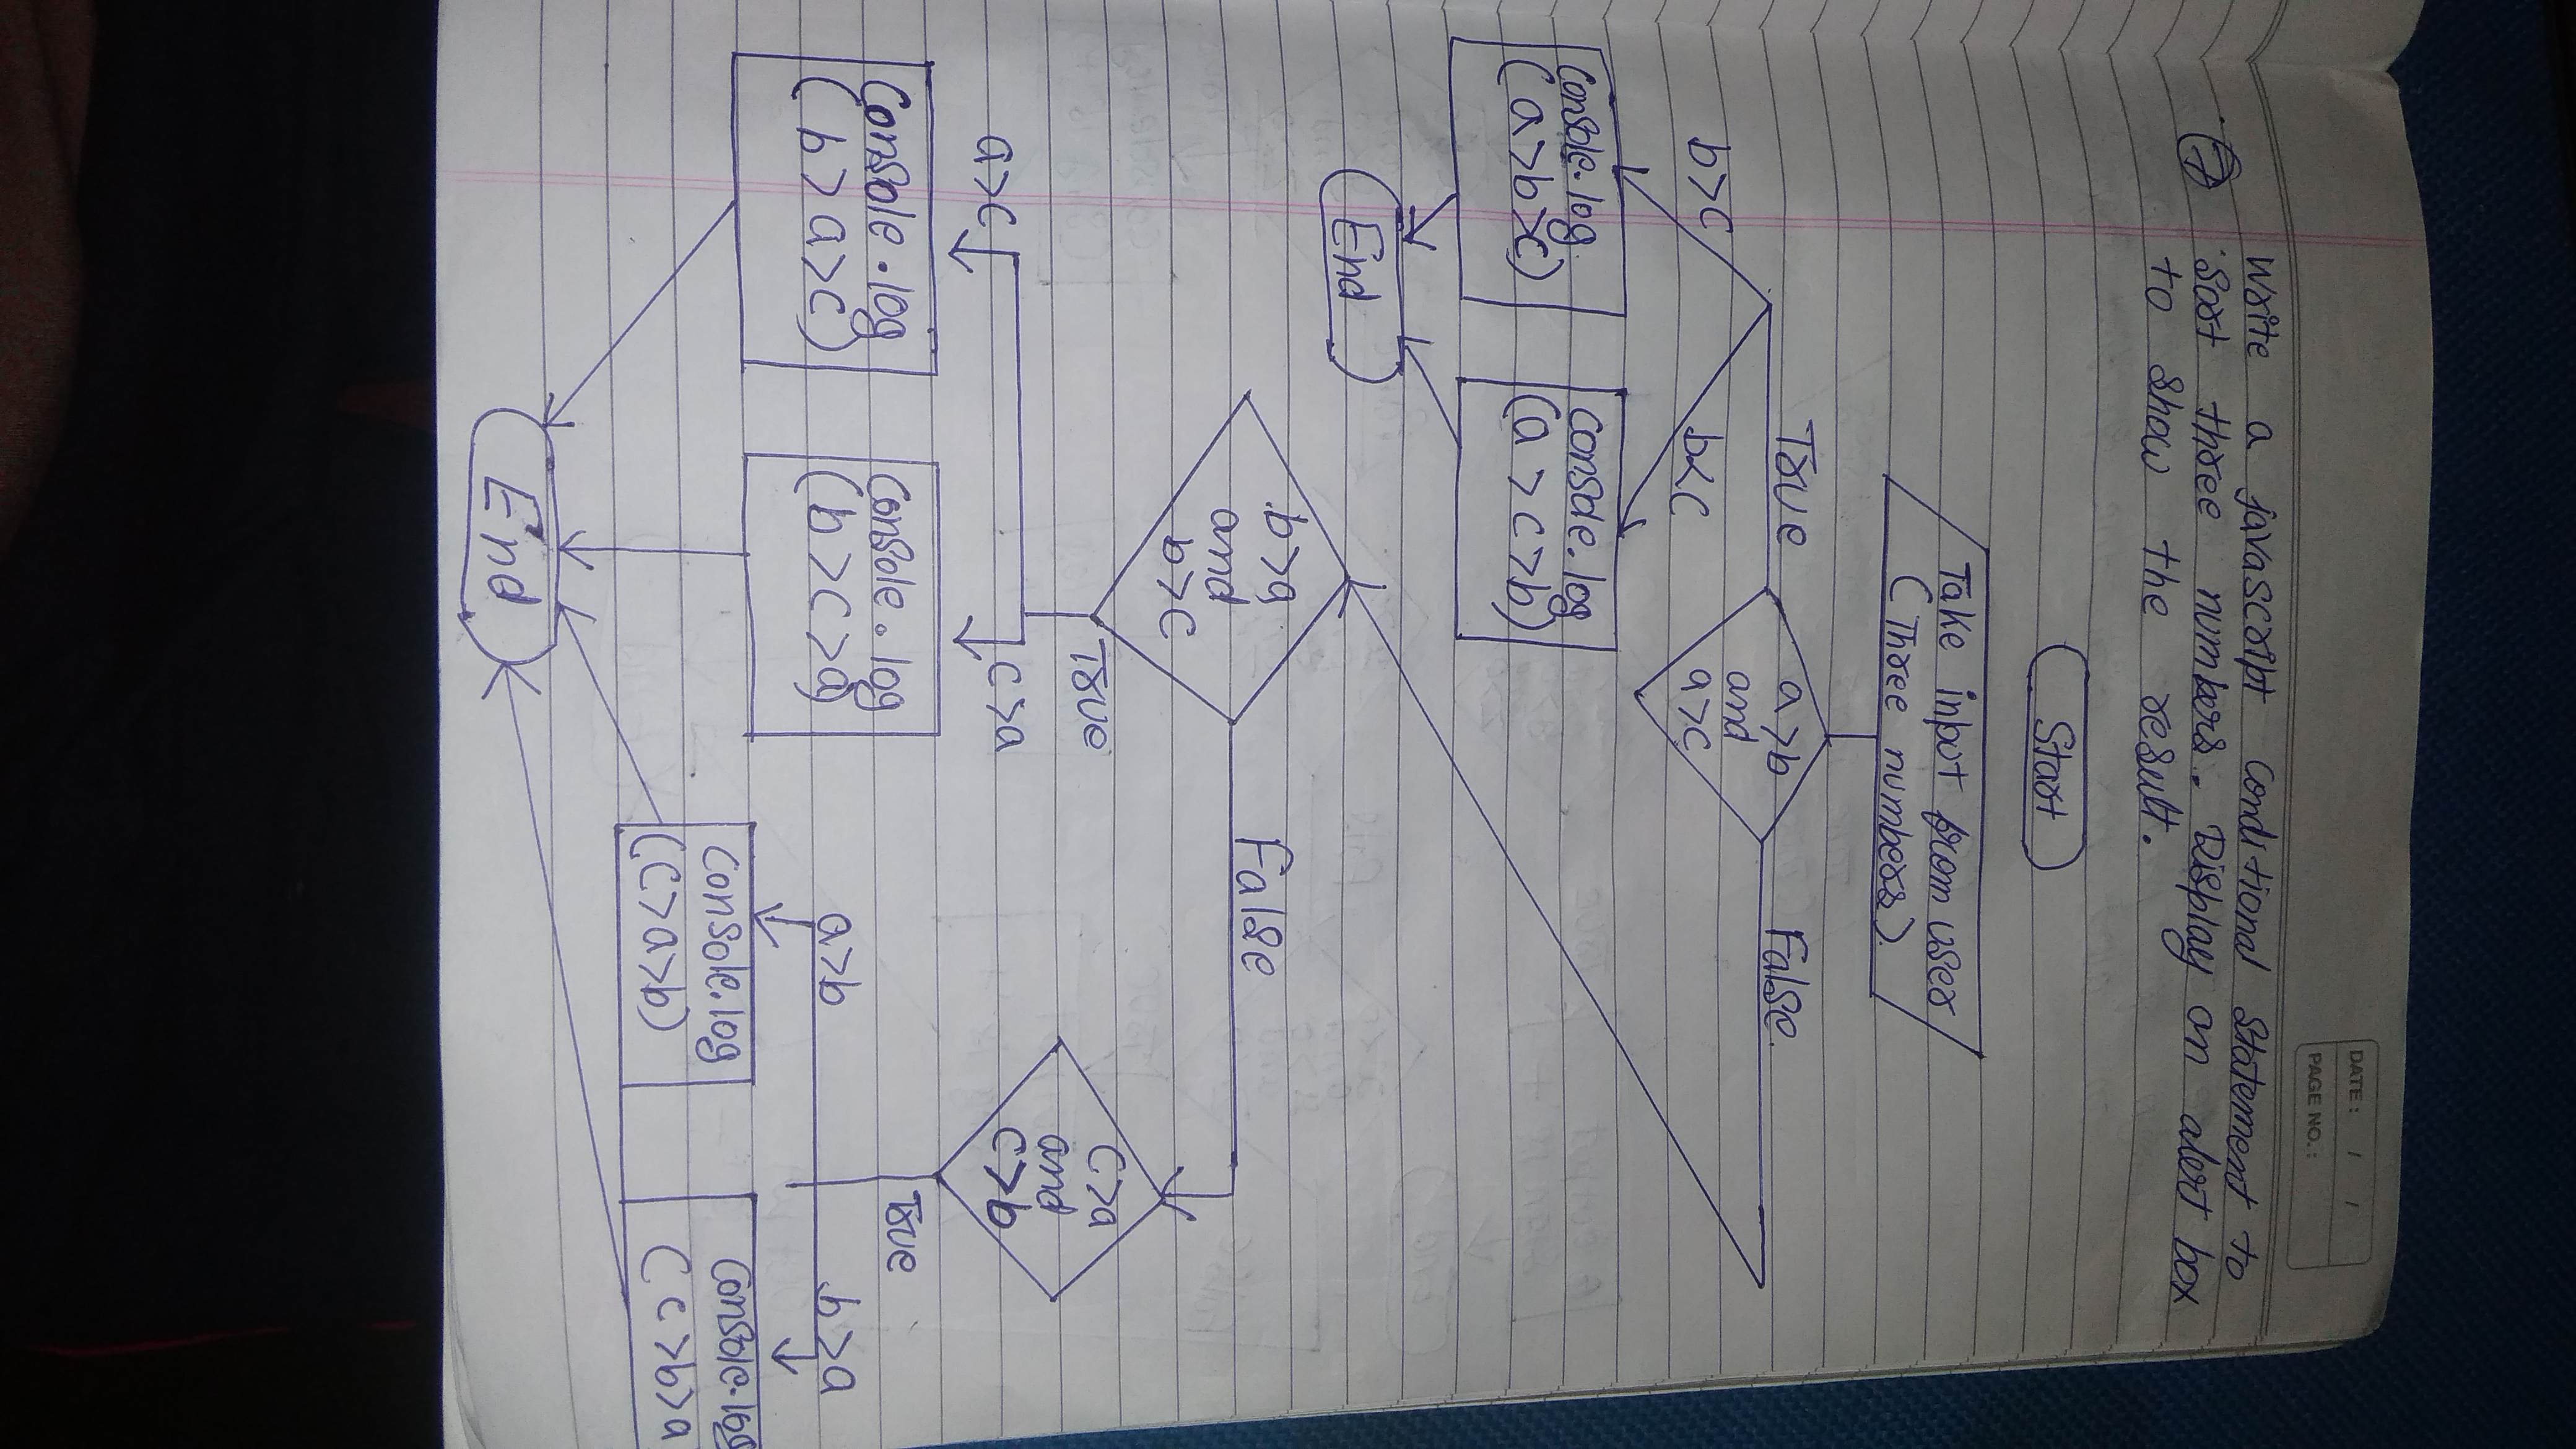 DATE: / /
PAGE NO.:
write a javascript conditional statement to
7 Sort three numbers. Display an alert box
to show the result.
Start
Take input from user
(Three numbers).
True
a>b
and
a>c
False.
b>c
b<c
Console.log
(a>b>c)
Console.log
(a>c>b)
End
b>a
and
b>c
False
True
c>a
and
c>b
True
a>c
c>a
Console.log
(b>a>c)
Console.log
(b>c>a)
a>b
b>a
Console.log
(c>a>b)
Console.log
(c>b>a
End